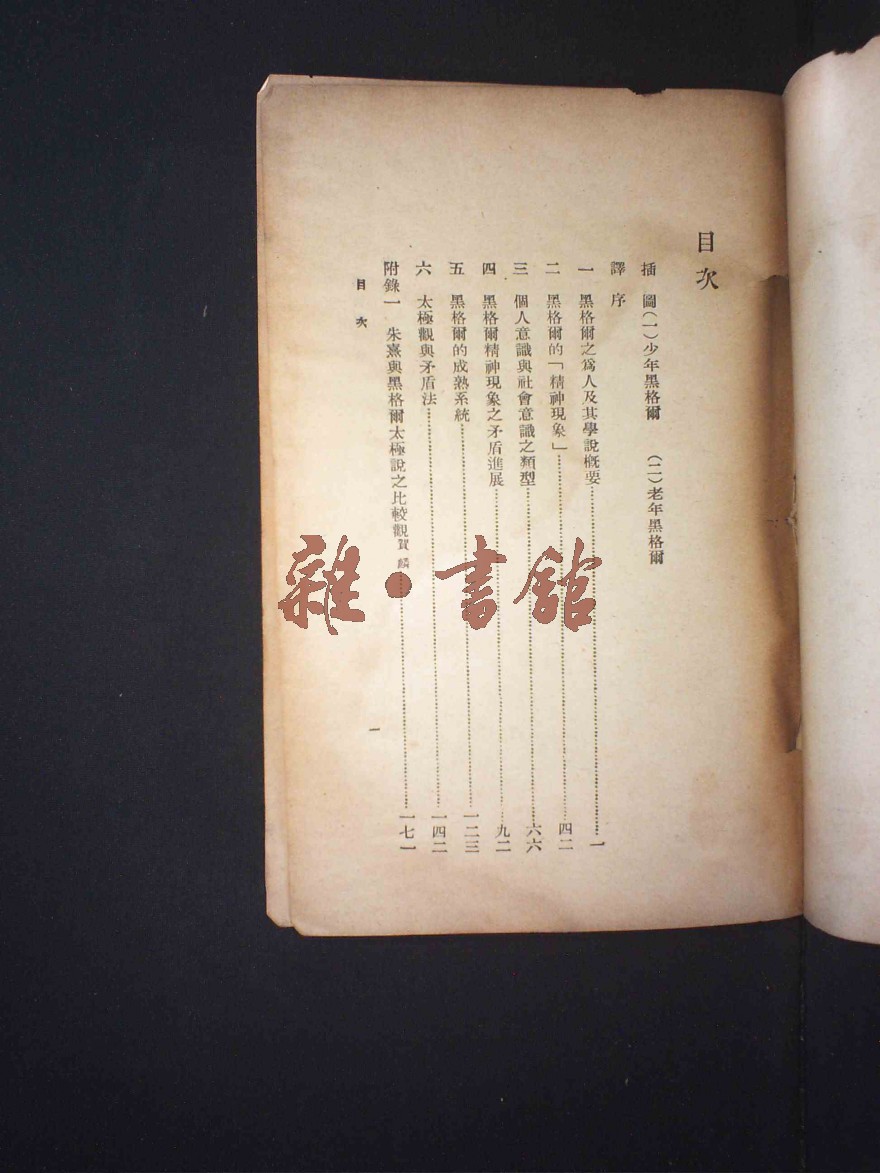 目次
插圖（一）少年黑格爾　（二）老年黑格爾
譯序
一　黑格爾之爲人及其學說概要……一
二　黑格爾的「精神現象」……四二
三　個人意識與社會意識之類型……六六
四　黑格爾精神現象之矛盾進展……九二
五　黑格爾的成熟系統……一二三
六　太極觀與矛盾法……一四二
附錄一　朱熹與黑格爾太極說之比較觀 賀麟……一七一
目次
一
雜·書館